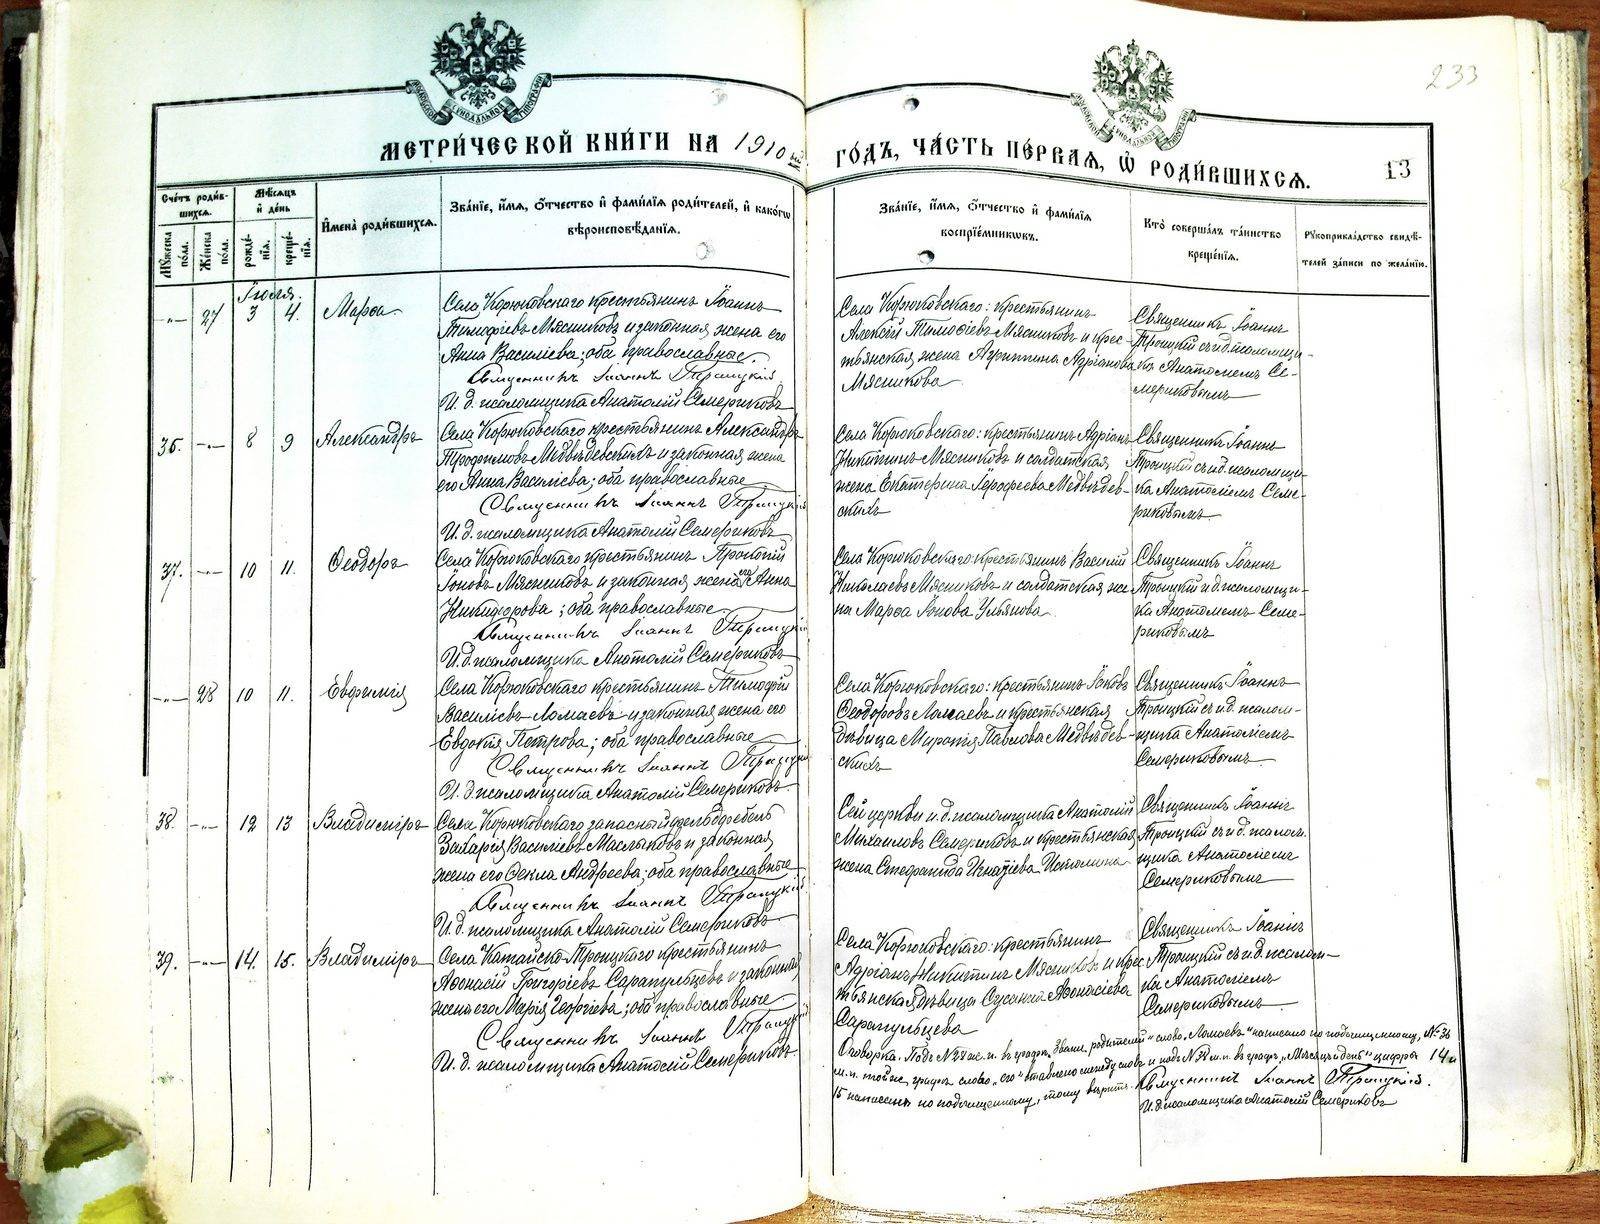 233
МЕТРИ́ЧЕСКОЙ КНИ́ГИ НА 1910 ый ГО́ДЪ, ЧА́СТЬ ПЕ́РВАЯ, Ѿ РОДИ́ВШИХСЯ.
13
Сче́тъ роди́вшихся.
Мꙋ́жеска по́ла.
Же́нска по́ла.
Мѣ́сяцъ и́ де́нь
рожде́нїя.
креще́нїя.
И҆мена̀ роди́вшихся.
Зва́нїе, и́мя, ѻ҆́тчество и҆ фами́лїя роди́телей, и҆ како́гѡ
вѣроисповѣ́данїя.
Зва́нїе, и́мя, ѻ҆́тчество и҆ фами́лїя
воспрїе́мниковъ.
Кто̀ соверша́лъ та́инство
креще́нїя.
Рꙋкоприкла́дство свидѣ́-
телей за́писи по жела́нїю.
Іюля.
-"- 27 3 4. Марѳа
Села Корюковскаго крестьянинъ Іоаннъ
Тимофіевъ Мясниковъ и законная жена его
Анна Василіева; оба православные.
Священникъ Іоаннъ Троицкій.
И. д. псаломщика Анатолій Семериковъ
Села Корюковскаго: крестьянинъ
Алексій Тимофіевъ Мясниковъ и крес-
тьянская жена Агриппина Адріанова
Мясникова
Священникъ Іоаннъ
Троицкій съ и.д. псаломщи-
ка Анатоліемъ Се-
мериковымъ
36. -"- 8 9 Александръ
Села Корюковскаго крестьянинъ Александръ
Трофимовъ Медвѣдевскихъ и законная жена
его Анна Василіева; оба православные
Священникъ Іоаннъ Троицкій
И. д. псаломщика Анатолій Семериковъ
Села Корюковскаго: крестьянинъ Адріанъ
Никитинъ Мясниковъ и солдатская
жена Екатерина Іерофеева Медвѣдев-
скихъ
Священникъ Іоаннъ
Троицкій съ и.д. псаломщи-
ка Анатоліемъ Семе-
риковымъ.
37. -"- 10 11. Ѳеодоръ
Села Корюковскаго крестьянинъ Прокопій
Іоновъ Мясниковъ и законная жена его Анна
Никифорова; оба православные
Священникъ Іоаннъ Троицкій
И. д. псаломщика Анатолій Семериковъ
Села Корюковскаго крестьянинъ Василій
Николаевъ Мясниковъ и солдатская же-
на Марѳа Іонова Ульянова
Священникъ Іоаннъ
Троицкій и д. псаломщи-
ка Анатоліемъ Семе-
риковымъ
-"- 28 10 11. Евфимія
Села Корюковскаго крестьянинъ Тимофій
Василіевъ Ломаевъ и законная жена его
Евдокія Петрова; оба православные
Священникъ Іоаннъ Троицкій
И. д. псаломщика Анатолій Семериковъ.
Села Корюковскаго: крестьянинъ Іаковъ
Ѳеодоровъ Ломаевъ и крестьянская
дѣвица Миропія Павлова Медвѣдев-
скихъ
Священникъ Іоаннъ
Троицкій съ и.д. псалом-
щика Анатоліемъ
Семериковымъ.
38. -"- 12 13 Владиміръ
Села Корюковскаго запасный фельдфебель
Захарія Василіевъ Маслыковъ и законная
жена его Ѳекла Андреева; оба православные
Священникъ Іоаннъ Троицкій
И. д. псаломщика Анатолій Семериковъ
Сей церкви и.д. псаломщика Анатолій
Михаиловъ Семериковъ и крестьянская
жена Стефанида Игнатіева Истомина
Священникъ Іоаннъ
Троицкій съ и.д. псалом-
щика Анатоліемъ
Семериковымъ
39. -"- 14. 15. Владиміръ
Села Катайско-Троицкаго крестьянинъ
Аѳонасій Григоріевъ Сарапульцевъ и законная
жена его Марія Георгіева; оба православные
Священникъ Іоаннъ Троицкій
И. д. псаломщика Анатолій Семериковъ.
Села Корюковскаго: крестьянинъ
Адріанъ Никитинъ Мясниковъ и крес-
тьянская дѣвица Сусанна Аѳонасіева
Сарапульцева
Священникъ Іоаннъ
Троицкій съ и.д. псалом-
ка Анатоліемъ
Семериковымъ
Оговорка. Подъ № 28 ж. п. въ графѣ „Званіе родителей" слово „Ломаевъ" написано по подчищенному, № 36
м. п. той же графѣ слово „его" вставлено между словъ и подъ № 38 м. п. въ графѣ „Мѣсяцъ и день" цифры 14 и
15 написаны по подчищенному, тому вѣрить. Священникъ Іоаннъ Троицкій.
И. д. псаломщика Анатолій Семериковъ